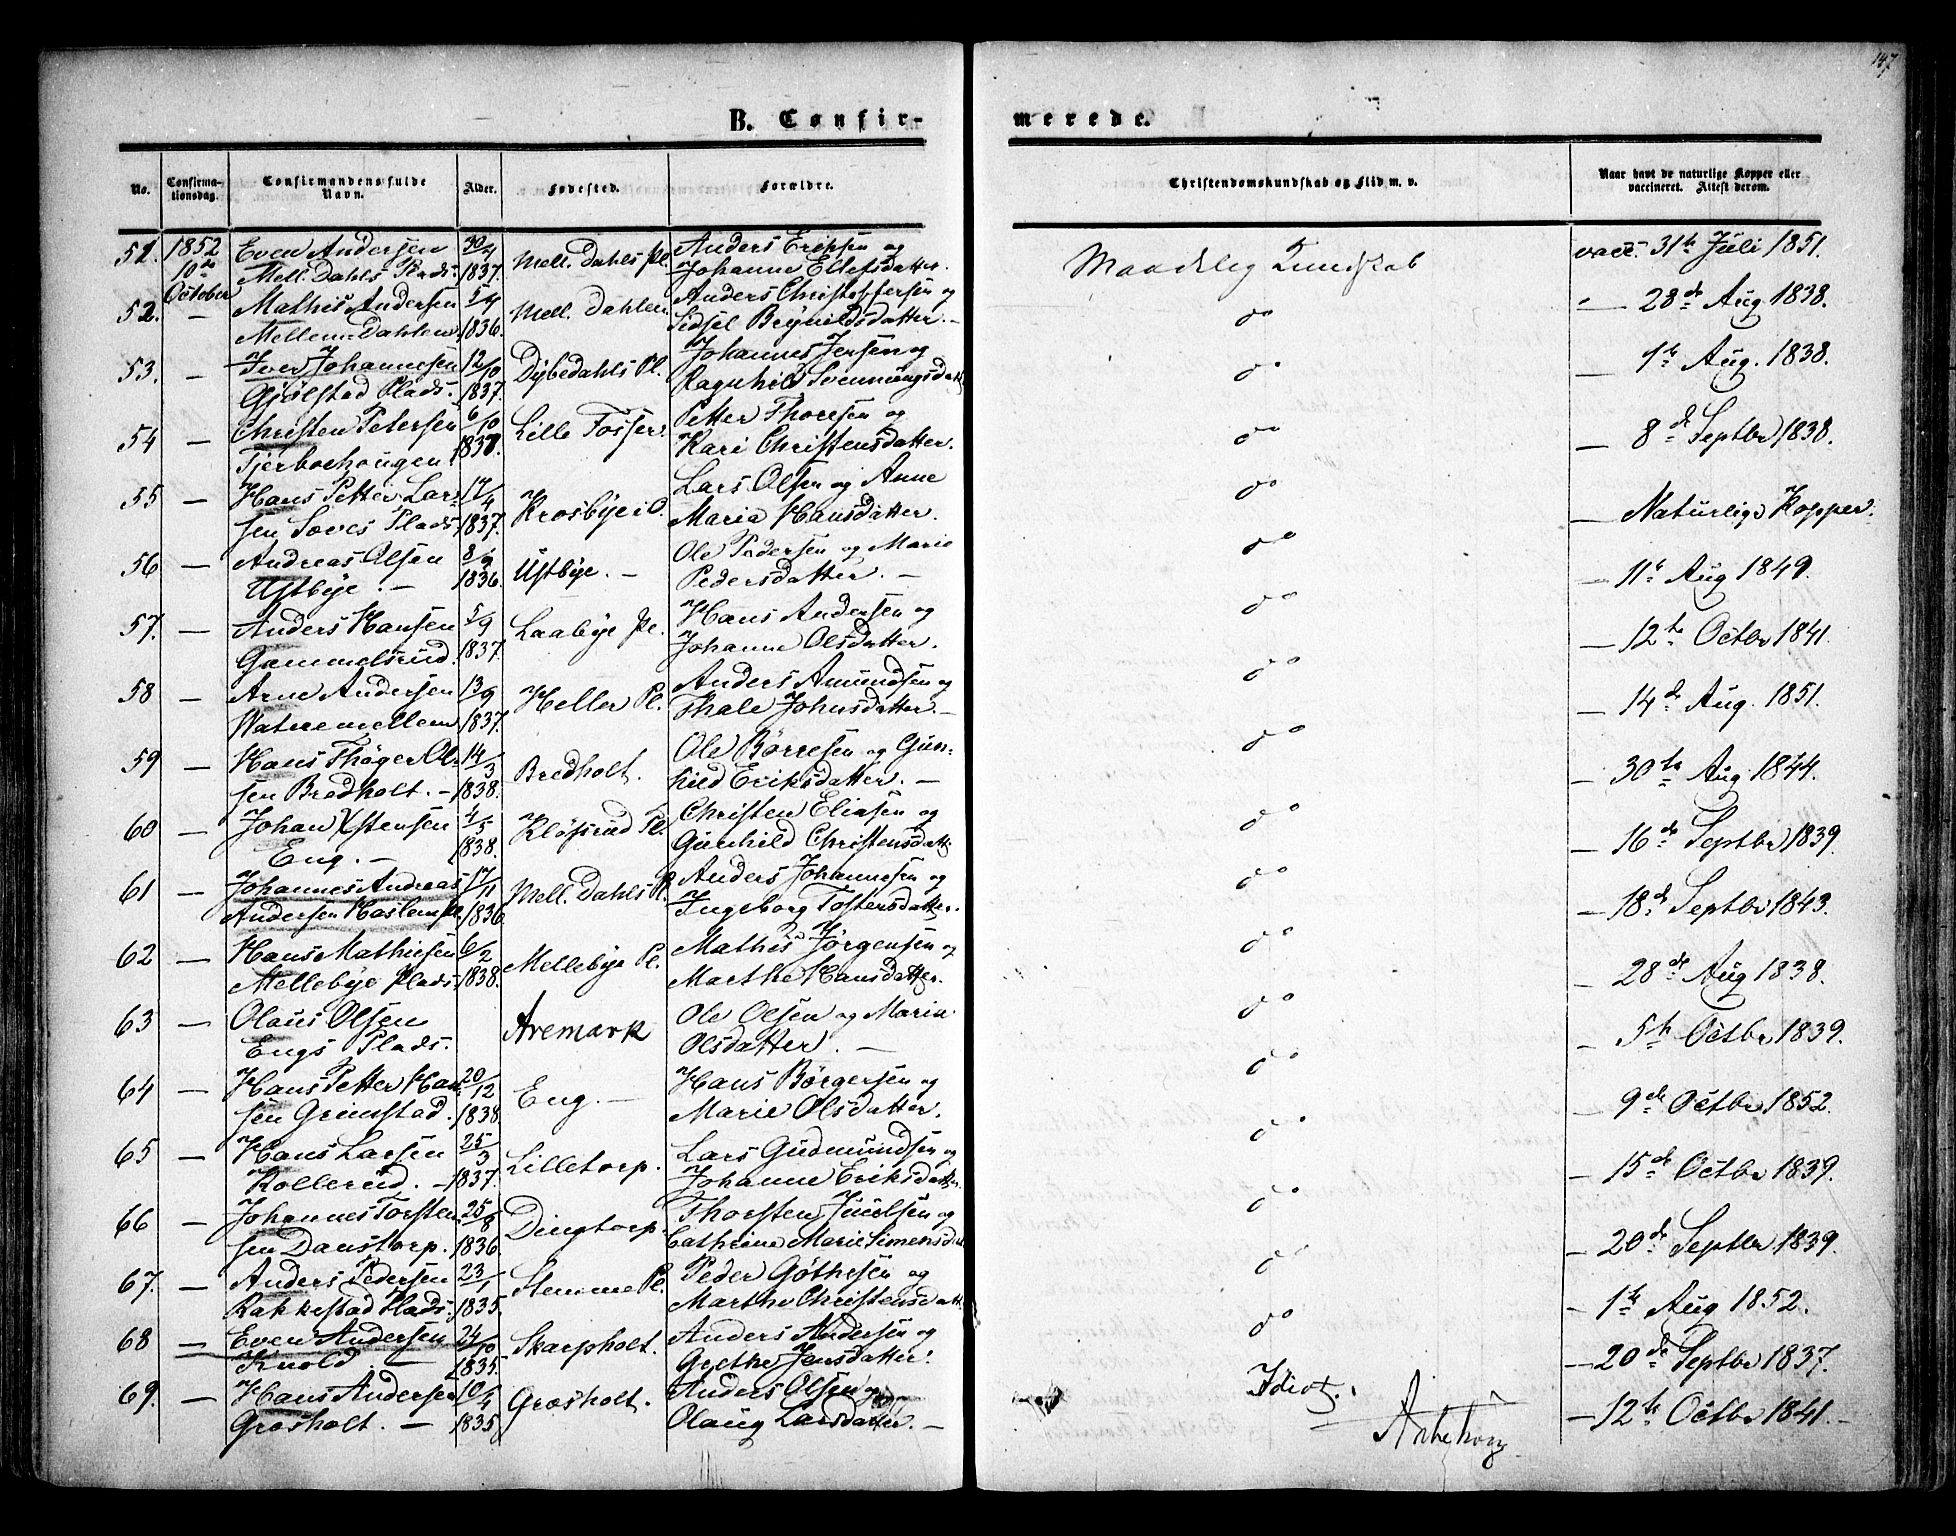 147
B. Confir-
merede.
No.
Confirma-
tionsdag.
Confirmandens fulde
Navn.
Alder.
Fødested.
Forældre.
Christendomskundskab og Flid m. v.
Naar havt de naturlige Kopper eller
vaccineret. Attest derom.
51. 1852 Even Andersen 30/4 Mell. Dahls Pl. Anders Erichsen og Maadelig Kundskab vacc. 31te Juli 1851.
10de October Mell. Dahls Plads. 1837. Johanne Ellefsdatter.
52. — Mathis Andersen 5/4 Mell. Dahlen Anders Christoffersen og do — 28de Aug 1838.
Mellem Dahlen 1836. Sidsel Brynildsdatter. —
53. — Iver Johannesen 12/10 Dybedahls Pl. Johannes Jensen og do — 1te Aug. 1838.
Gjølstad Plads. 1837. Ragnhild Svenningsdatt.
54 — Christen Petersen 6/10 Lille Fosser. Petter Thoresen og do — 8de Septbr 1838.
Tjerboehougen 1837. Kari Christensdatter.
55 — Hans Petter Lar- 17/4 Krosbye i O. Lars Olsen og Anne do — Naturlige Kopper.
sen Soves Plads. 1837. Maria Hansdatter.
56 — Andreas Olsen 8/9 Ustbye. — Ole Pedersen og Marie do — 11te Aug 1849.
Ustbye. — 1836. Pedersdatter. —
57. — Anders Hansen 5/9 Laabye Pl. Hans Andersen og do — 12te Octbr 1841.
Gammelsrud. 1837. Johanne Olsdatter.
58 — Arne Andersen 13/9 Heller Pl. Anders Amundsen og do — 14de Aug. 1851.
Natvremellem 1837. Thale Johnsdatter. —
59 — Hans Thøger Ol- 14/3 Bredholt. Ole Børresen og Gun- do — 30te Aug 1844.
sen Bredholt. — 1838. hild Eriksdatter. —
60 — Johan Xstensen 4/5 Kløfsrud Pl. Christen Eliasen og do — 16de Septbr 1839.
Eng. — 1838. Gunhild Christensdatt.
61 — Johannes Andreas 17/11 Mell. Dahls Pl. Anders Johannesen og do — 18de Septbr 1843.
Andersen Haslem Pl. 1836 Ingeborg Tostensdatter.
62 — Hans Mathiesen 6/2 Mellebye Pl. Mathis Jørgensen og do — 28de Aug 1838.
Mellebye Plads. 1838. Marthe Hansdatter.
63 — Olaus Olsen Aremark Ole Olsen og Maria do — 5te Octbr 1839.
Engs Plads. Olsdatter. —
64 — Hans Petter Han- 20/12 Eng. — Hans Børgersen og do — 9de Octbr 1852.
sen Grimstad. 1838. Marie Olsdatter.
65 — Hans Larsen 25/3 Lilletorp. Lars Gudmundsen og do — 15de Octbr 1839.
Kollerud. — 1837. Johanne Eriksdatter.
66 — Johannes Torsten- 25/8 Dingtorp. Thorsten Juelsen og do — 20de Septbr 1839.
sen Danstorp. 1836. Cathrine Marie Simensdat
67. — Anders Pedersen 23/1 Stemme Pl. Peder Gøthesen og do — 1te Aug 1852.
Rakkestad Plads. 1835. Marthe Christensdatt.
68 — Even Andersen 24/10 Skarpholt. Anders Andersen og do — 20de Septbr 1837.
Knold. — 1835. Grethe Jensdatter.
69. — Hans Andersen 10/4 Grosholt. Anders Olsen og Idiot. — 12te Octbr 1841. —
Grosholt. — 1835 Olaug Larsdatter. —